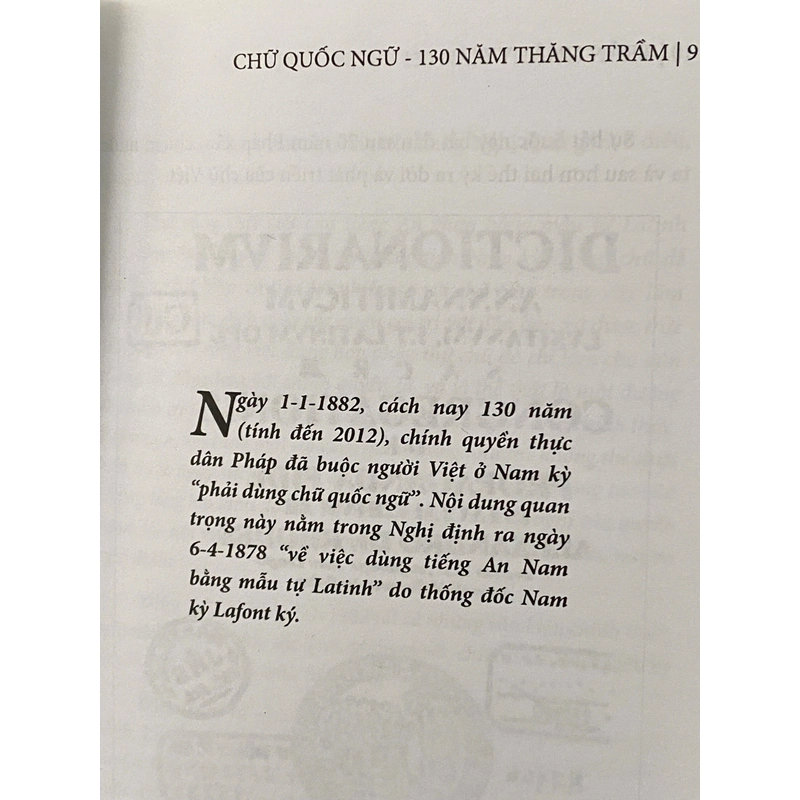 CHỮ QUỐC NGỮ - 130 NĂM THĂNG TRẦM | 9
Ngày 1-1-1882, cách nay 130 năm
(tính đến 2012), chính quyền thực
dân Pháp đã buộc người Việt ở Nam kỳ
“phải dùng chữ quốc ngữ”. Nội dung quan
trọng này nằm trong Nghị định ra ngày
6-4-1878 “về việc dùng tiếng An Nam
bằng mẫu tự Latinh” do thống đốc Nam
kỳ Lafont ký.